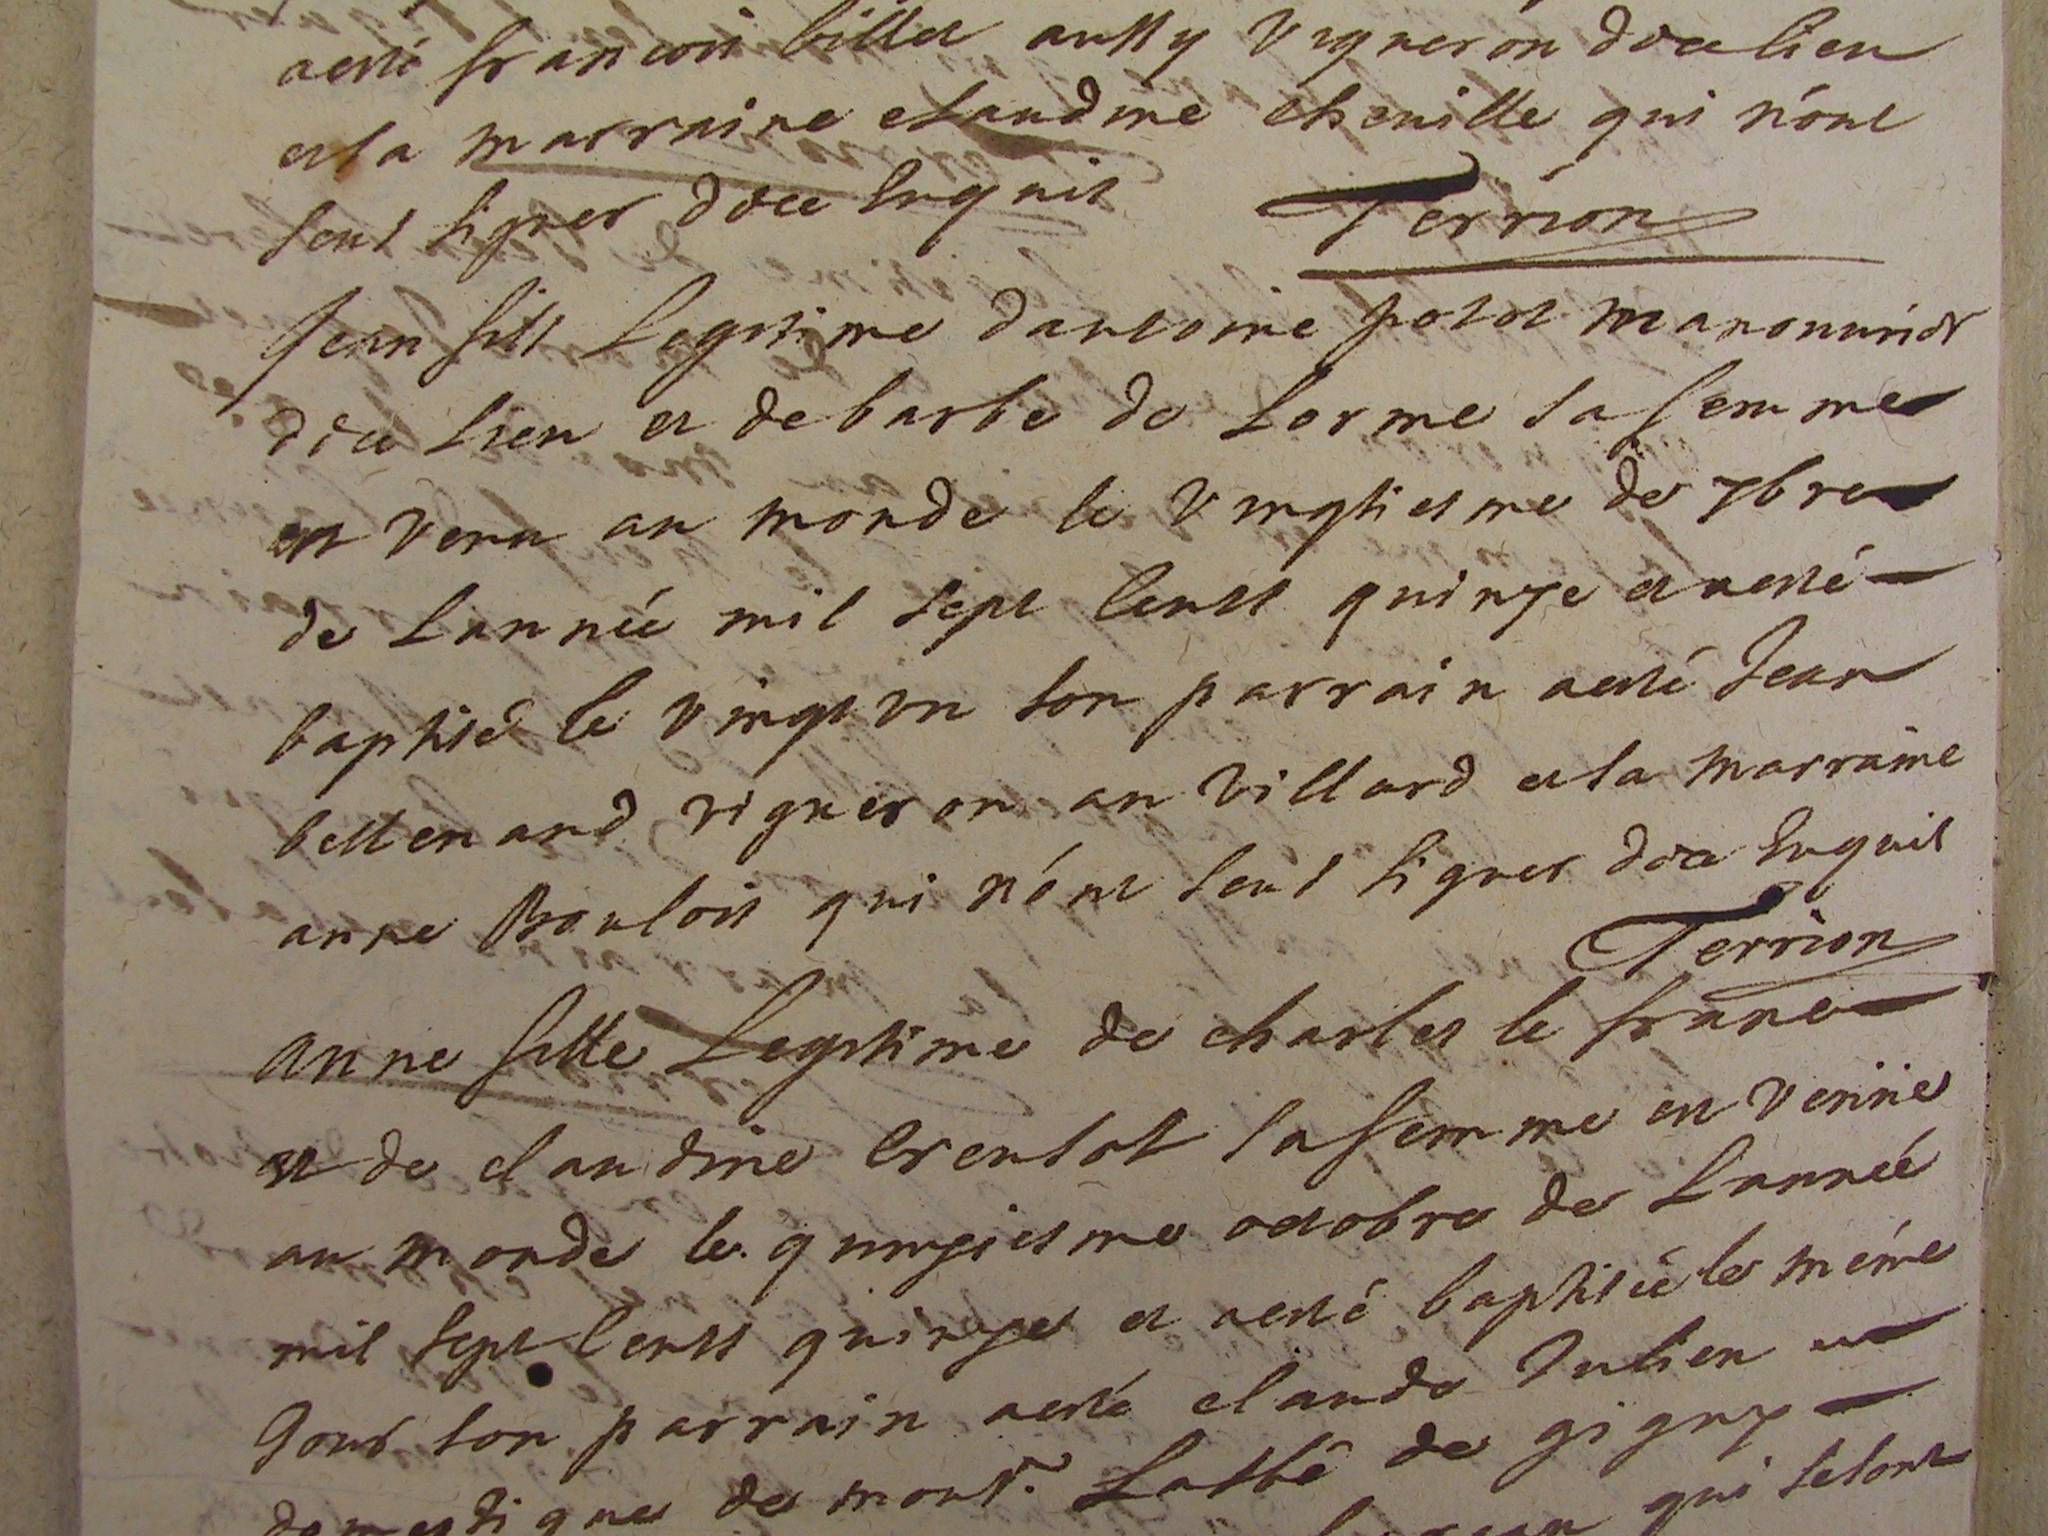 aesté francois billet aussy vigneron dece lieu
et sa marraine claudine chenille qui n'ont
sceut signer dece enquis Terrion
Jean fils Legitime dantoine potot manouvrier
dece Lieu et de barbe de Lorme sa femme
est venu au monde le vingtiesme de 7bre
de Lannée mil sept Centss quinze et aesté
baptisé le vingt vn son parrain aesté Jean
bettenand vigneron au villard et sa marraine
anne Boulois qui n'ont sceut signer dece Enquis
Terrion
anne fille Legitime de charles le franc
et de claudine Creusot sa femme est venüe
au monde le quinziesme octobre de Lannée
mil sept Centss quinze et aesté baptisée le méme
Jour son parrain aesté claude Julien
domestique de monsr. Labbé de gigny
qui selont